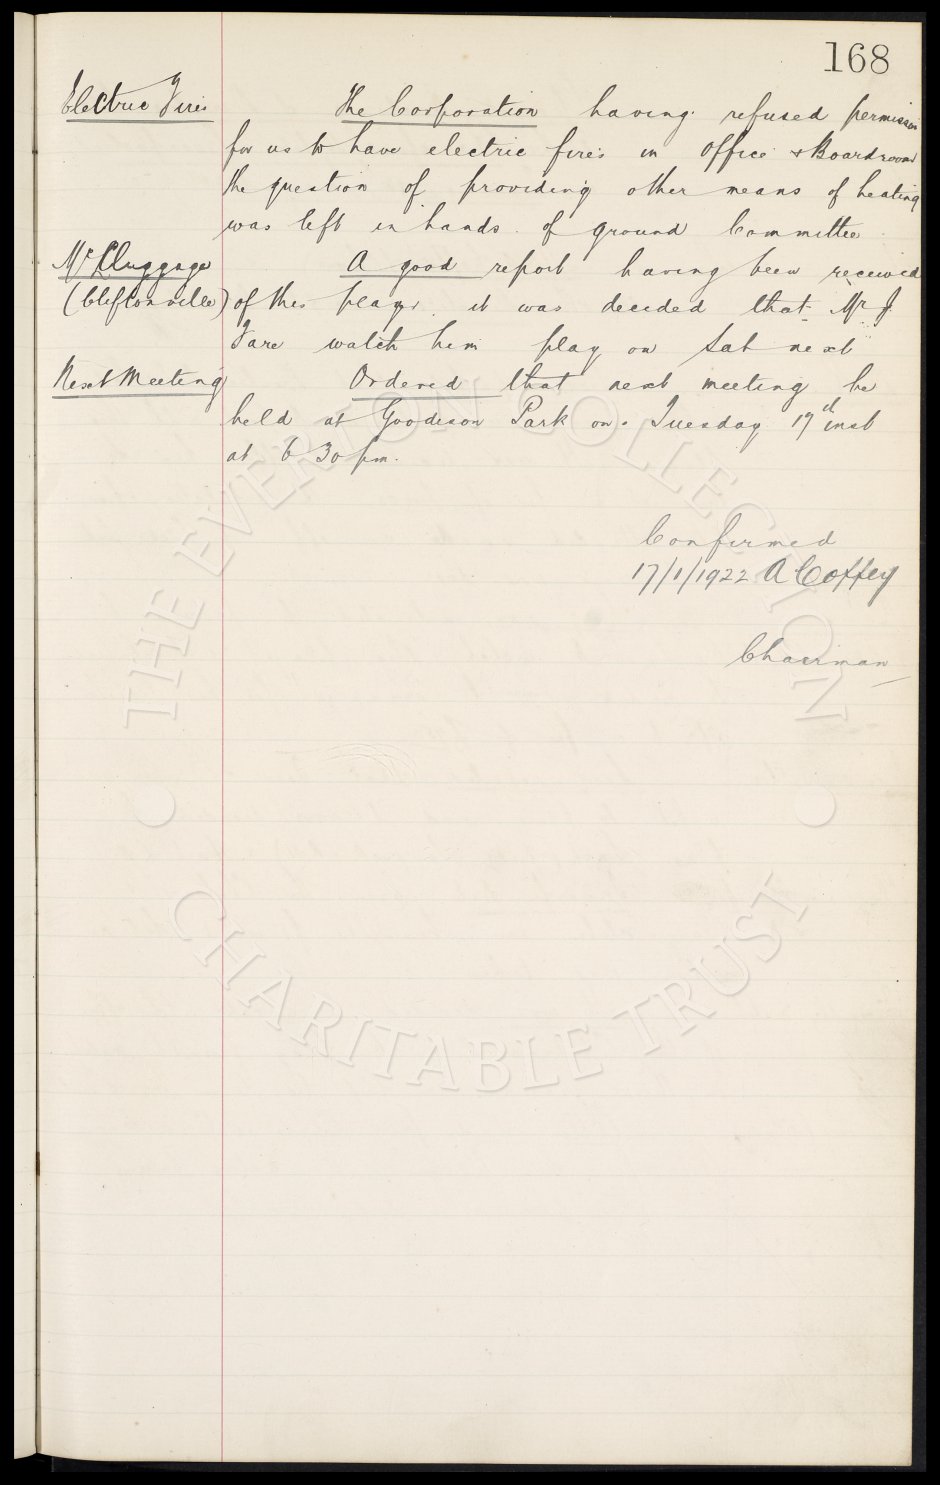 168
Electric Fires The Corporation having refused permission
for us to have electric fires in Office & Boardroom
the question of providing other means of heating
was left in hands of ground Committee
McCluggage A good report having been received
(Cliftonville) of this player it was decided that Mr J.
Fare watch him play on Sat next
Next Meeting Ordered that next meeting be
held at Goodison Park on Tuesday 17th inst
at 6 30 pm.
Confirmed
17/1/1922 A Coffey
Chairman
THE EVERTON COLLECTION
CHARITABLE TRUST